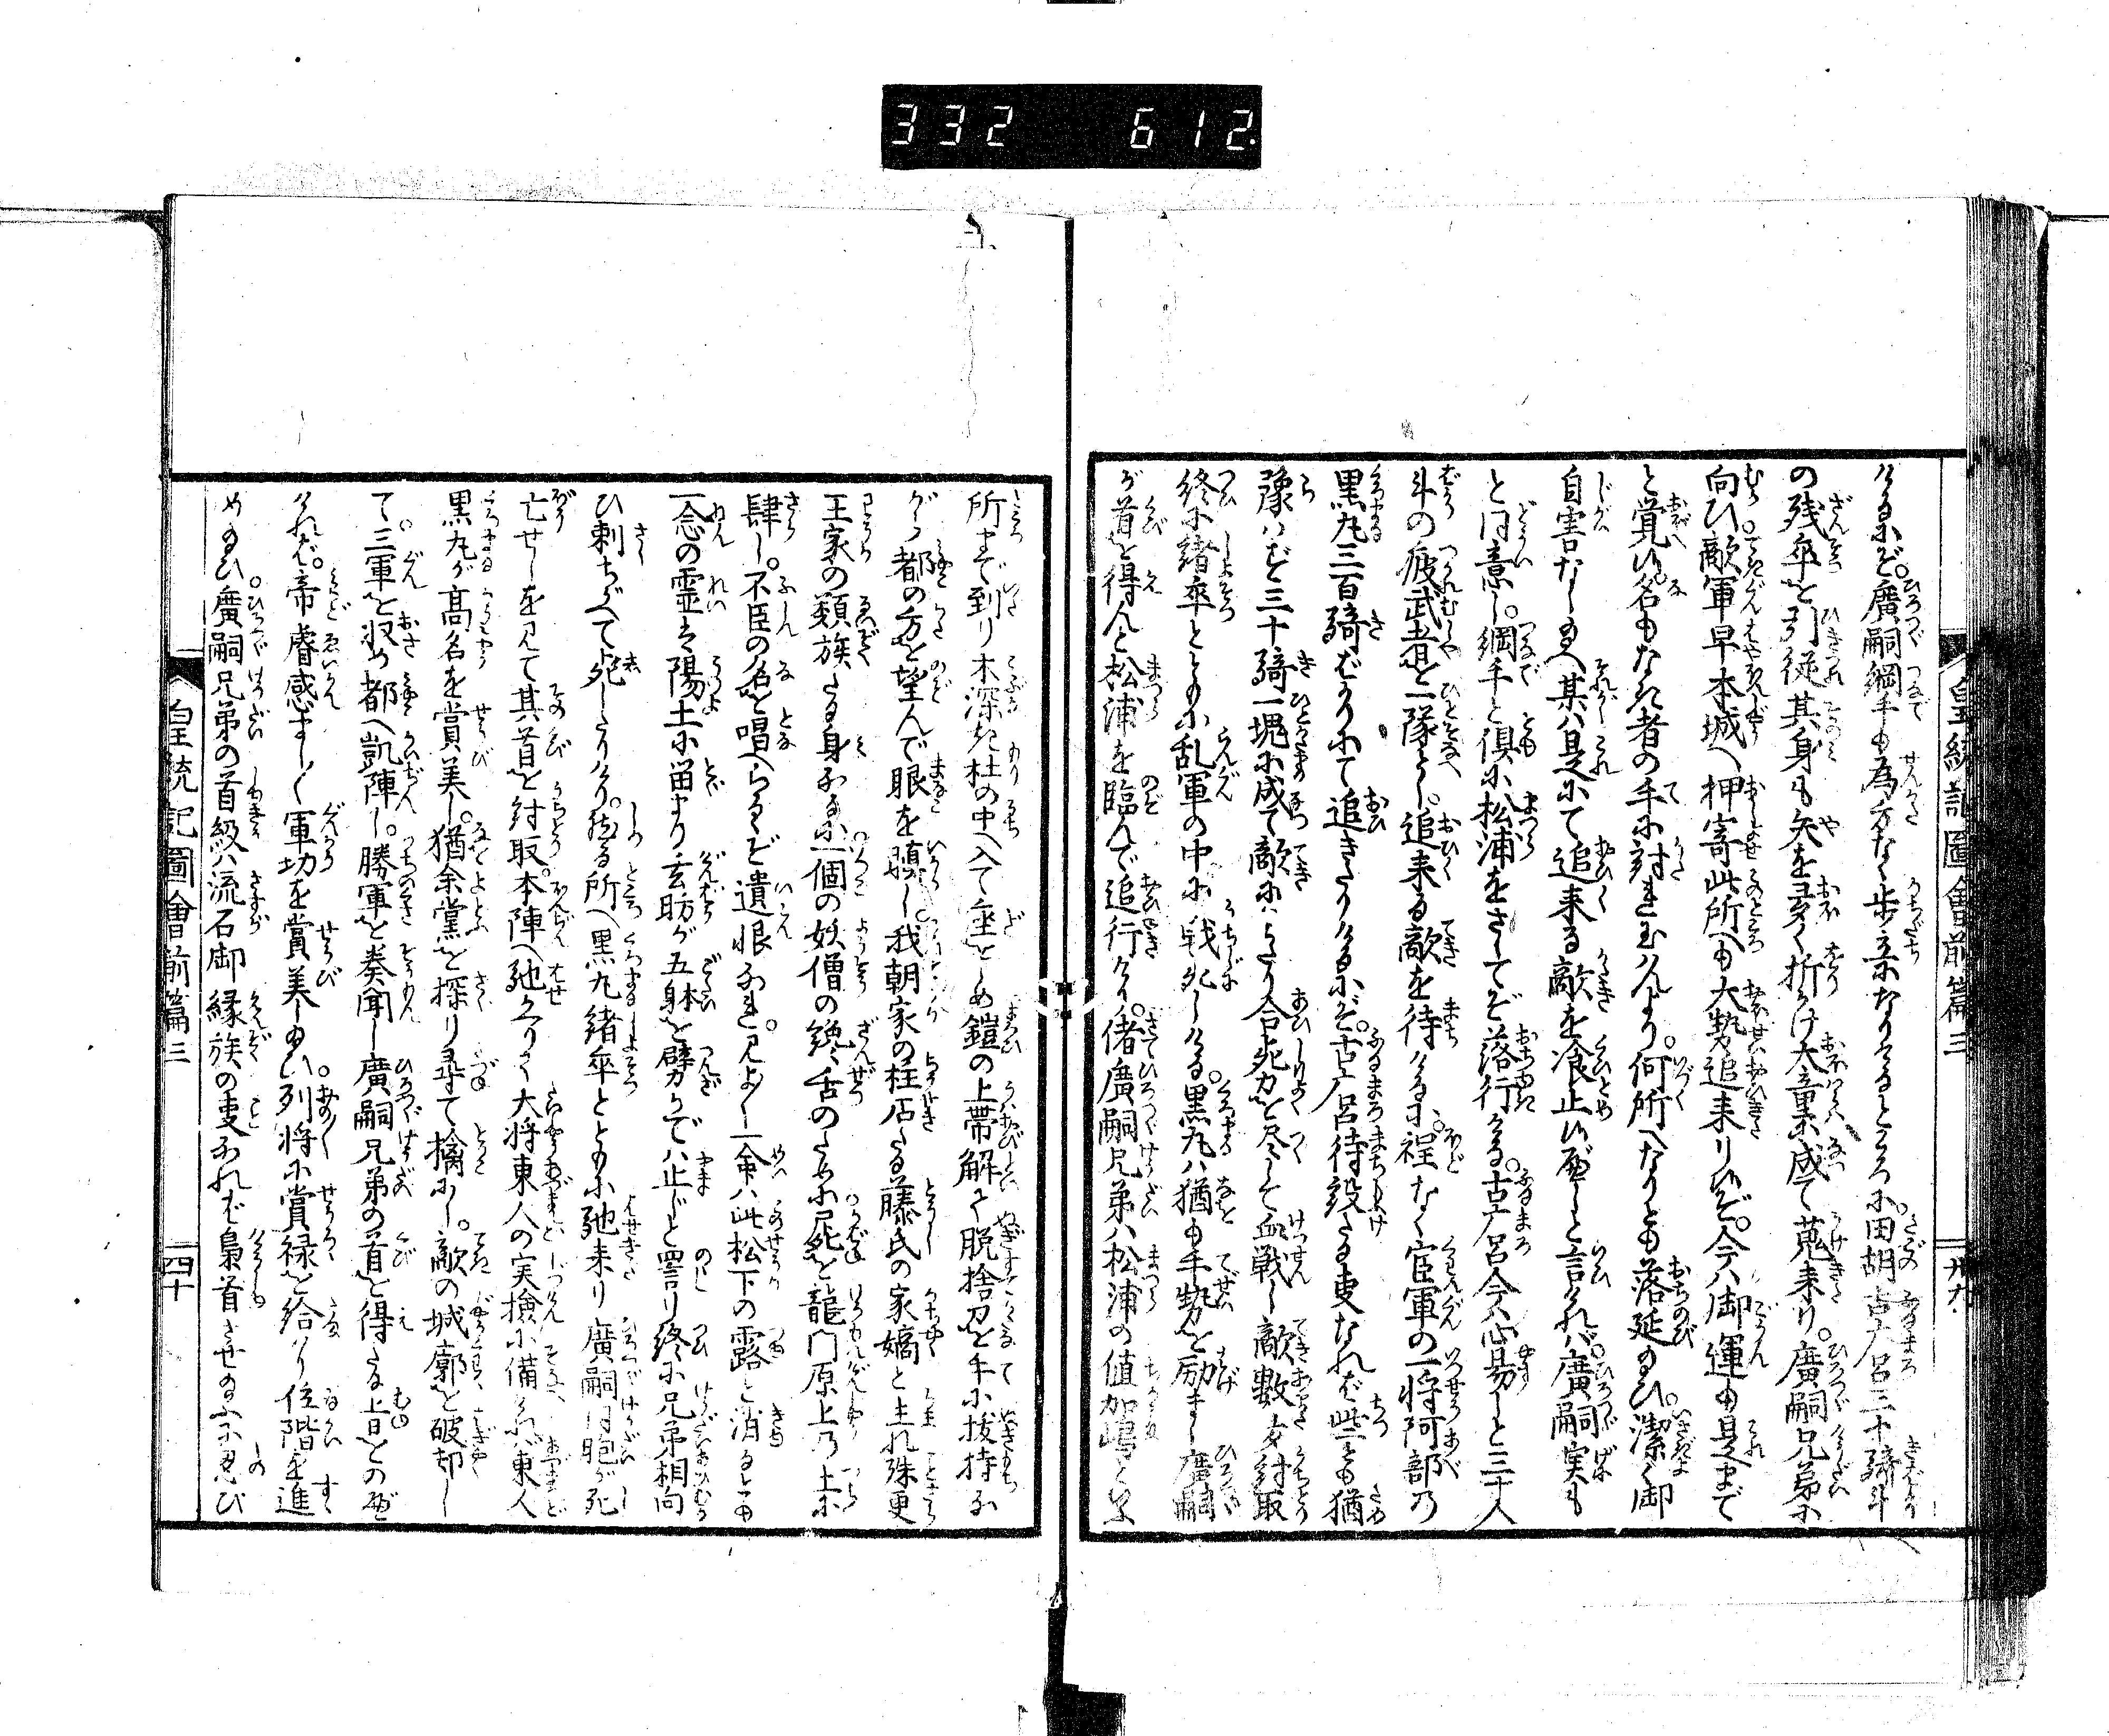 332 612
皇統記圖會前篇三
卅九
けるにぞ。廣嗣綱手も為方なく歩立になりけるところに。田胡古广呂三十騎斗
の残卒を引従其身も矢を多く折かけ大童に成て蒐来り。廣嗣兄弟に
向ひ。敵軍早本城へ押寄此所へも大勢追来り候ぞ。今ハ御運も是まで
と覚候。名もなき者の手に討れ玉はんより。何所へなりとも落延給ひ。潔く御
自害なし給へ。某ハ是にて追来る敵を喰止候べしと言けれバ。廣嗣実も
と同意し。綱手と倶に松浦をさしてぞ落行ける。古广呂今ハ心易しと三十人
斗の疲武者を一隊とし。追来る敵を待けるに。程なく官軍の一将阿部の
黒丸三百騎ばかりにて追きたりけるにぞ。古广呂待設たる事なれば些とも猶
豫はず三十騎一塊に成て敵に当り合死力を尽して血戦し敵数多討取
終に諸卒とともに乱軍の中に戦死しける。黒丸ハ猶も手勢を励まし廣嗣
が首を得んと松浦を臨んで追行けり。偖廣嗣兄弟ハ松浦の値加嶋といふ
所まで到り木深き杜の中へ入て座をしめ鎧の上帯解て脱捨刀を手に抜持な
がら都の方を望んで眼を瞋し我朝家の柱石たる藤氏の家嫡と生れ殊更
王家の類族たる身なるに一個の妖僧の讒舌のために屍を龍門原上の土に
肆し。不臣の名を唱へらるゝぞ遺恨なれ。見よ〳〵一命ハ此松下の露と消るとも
一念の霊は陽土に留まり玄昉が五身を劈かでハ止じと詈り終に兄弟相向
ひ刺ちがへて死したりけり。然る所へ黒丸諸卒とともに馳来り廣嗣同胞が死
亡せしを見て其首を討取。本陣へ馳かへりて大将東人の実撿に備ければ東人
黒丸が高名を賞美し。猶余黨を探り尋て擒にし。敵の城廓を破却し
て。三軍を収め都へ凱陣し。勝軍を奏聞し廣嗣兄弟の首を得たる旨をのべ
けれバ。帝睿感まし〳〵軍功を賞美し給ひ。列将に賞禄を給はり位階を進
め給ひ。廣嗣兄弟の首級ハ流石御縁族の事なれば梟首させ給ふに忍び
皇統記圖會前篇三
四十